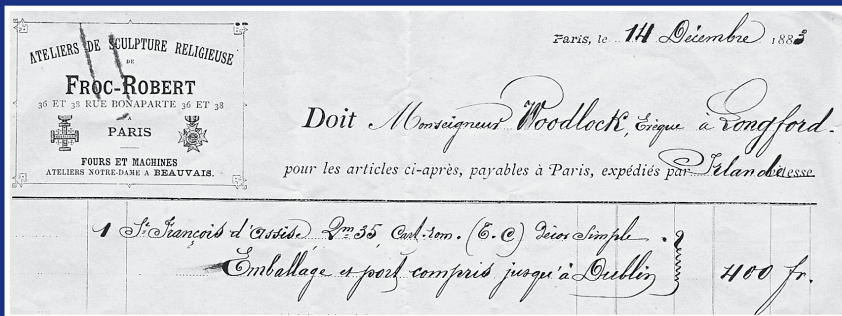 ATELIERS DE SCULPTURE RELIGIEUSE
DE
FROC-ROBERT
36 ET 38 RUE BONAPARTE 36 ET 38
PARIS
FOURS ET MACHINES
ATELIERS NOTRE-DAME A BEAUVAIS.
Paris, le 14 Décembre 1883
Doit Monseigneur Woodlock, Evêque à Longford.
pour les articles ci-après, payables à Paris, expédiés par Irlande
1 St François d'Assise 2m35, Cart. rom. (E. C) Décor Simple
Emballage et port compris jusqu'à Dublin 400 fr.